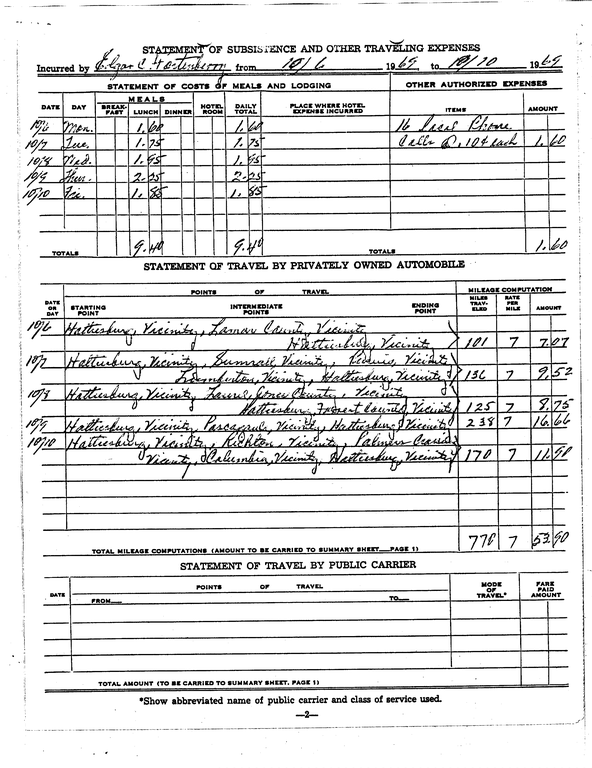 STATEMENT OF SUBSISTENCE AND OTHER TRAVELING EXPENSES
Incurred by Edgar C. Fortenberry from 10/6 1969 to 10/10 1969
STATEMENT OF COSTS OF MEALS AND LODGING OTHER AUTHORIZED EXPENSES
DATE DAY MEALS BREAK-FAST LUNCH DINNER HOTEL ROOM DAILY TOTAL PLACE WHERE HOTEL EXPENSE INCURRED ITEMS AMOUNT
10/6 Mon. 1.60 1.60 16 Local Phone
10/7 Tue. 1.75 1.75 Calls @ .10¢ each 1.60
10/8 Wed. 1.95 1.95
10/9 Thur. 2.25 2.25
10/10 Fri. 1.85 1.85
TOTALS 9.40 9.40 TOTALS 1.60
STATEMENT OF TRAVEL BY PRIVATELY OWNED AUTOMOBILE
DATE OR DAY POINTS OF TRAVEL MILEAGE COMPUTATION
STARTING POINT INTERMEDIATE POINTS ENDING POINT MILES TRAV-ELED RATE PER MILE AMOUNT
10/6 Hattiesburg, Vicinity, Lamar County, Vicinity
Hattiesburg, Vicinity 101 7 7.07
10/7 Hattiesburg, Vicinity, Sumrall, Vicinity, Vicinity
Lumberton, Vicinity, Hattiesburg, Vicinity 136 7 9.52
10/8 Hattiesburg, Vicinity, Laurel, Jones County, Vicinity
Hattiesburg, Forrest County, Vicinity 125 7 8.75
10/9 Hattiesburg, Vicinity, Pascagoula, Vicinity, Hattiesburg, Vicinity 238 7 16.66
10/10 Hattiesburg, Vicinity, Richton, Vicinity, Palmers
Vicinity, Columbia, Vicinity, Hattiesburg, Vicinity 170 7 11.90
TOTAL MILEAGE COMPUTATIONS (AMOUNT TO BE CARRIED TO SUMMARY SHEET PAGE 1) 770 7 53.90
STATEMENT OF TRAVEL BY PUBLIC CARRIER
DATE POINTS OF TRAVEL MODE OF TRAVEL* FARE PAID AMOUNT
FROM TO
TOTAL AMOUNT (TO BE CARRIED TO SUMMARY SHEET, PAGE 1)
*Show abbreviated name of public carrier and class of service used.
—2—